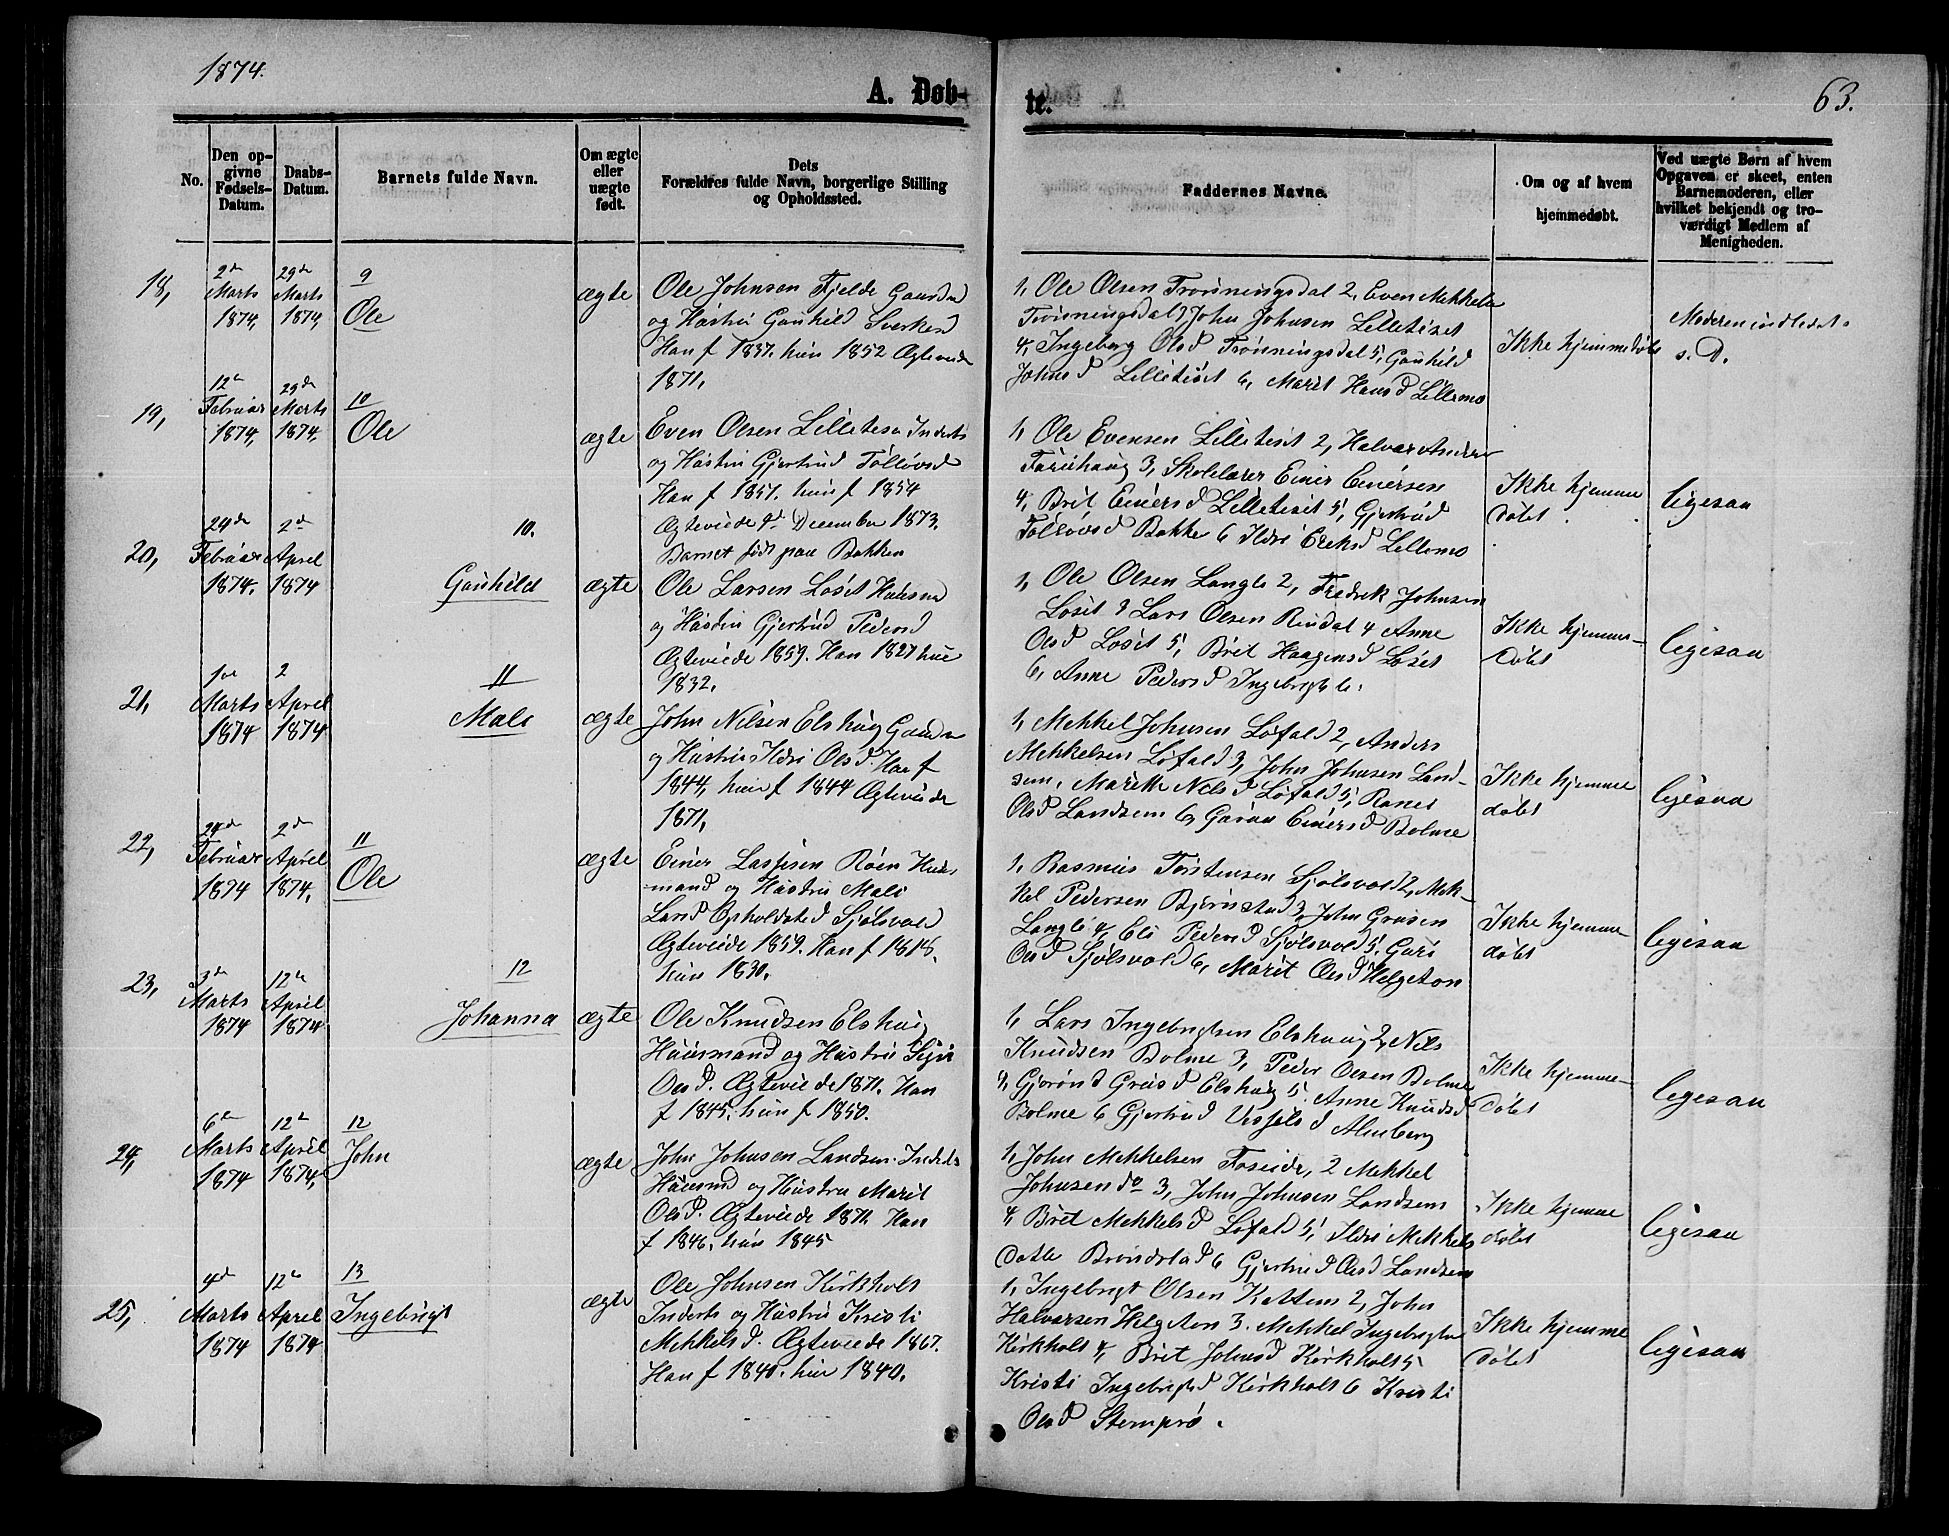 1874.
A. Døb-
te.
63.
No.
Den op-
givne
Fødsels-
Datum.
Daabs-
Datum.
Barnets fulde Navn.
Om ægte
eller
uægte
født.
Dets
Forældres fulde Navn, borgerlige Stilling
og Opholdssted.
Faddernes Navne.
Om og af hvem
hjemmedøbt.
Ved uægte Børn af hvem
Opgaven er skeet, enten
Barnemoderen, eller
hvilket bekjendt og tro-
værdigt Medlem af
Menigheden.
18,
2de
Marts
1874,
29de
Marts
1874,
9
Ole
ægte
Ole Johnsen Fjelde Gaardm
og Hustru Gunhild Sverkesd
Han f 1837. hun 1852 Ægteviede
1871,
1, Ole Olsen Trønningsdal 2, Even Mekkelsen
Trønningsdal 3, John Johnsen Lilletiset
4, Ingeborg Olsd Trønningsdal 5, Gunhild
Johnsd Lilletiset 6, Marit Hansd Lillemo
Ikke hjemmedøbt
Moderen indledet
s. D.
19,
12te
Februar
1874,
29de
Marts
1874.
10
Ole
ægte
Even Olsen Lilletisø Inderts
og Hustru Gjertrud Tolløvsd
Han f 1851. hun f 1854
Ægteviede 9de December 1873.
Barnet født paa Bakken
1, Ole Evensen Lilletiset 2, Halvar Anders
Furuhaug 3, Skolelærer Einer Einersen
4, Brit Einersd Lilletiset 5, Gjertrud
Tolløvsd Bakke 6 Ildri Ereksd Lillemo
Ikke hjemme
døbt
ligesaa
20,
24de
Februar
1874.
2de
Aprel
1874
10.
Gunhild
ægte
Ole Larsen Løset Husmd
og Hustru Gjertrud Pedersd
Ægteviede 1859. Han 1827 hun
1832.
1, Ole Olsen Langli 2, Fredrek Johnsen
Løset 3 Lars Olsen Rindal 4 Anne
Olsd Løset 5, Brit Haagensd Løset
6, Anne Pedersd Ingebrigtli.
Ikke hjemme-
døbt
ligesaa
21,
1ste
Marts
1874
2
Aprel
1874
11
Mali
ægte
John Nilsen Elshaug Gaardm
og Hustru Ildri Olsd. Han f
1844, hun f 1844 Ægteviede
1871,
1, Mekkel Johnsen Løfald 2, Anders
Mekkelsen Løfald 3, John Johnsen Land-
sem, Marith Nilsd Løfald 5, Ranei
Olsd Landsem 6, Guru Einersd Bolme
Ikke hjemme
døbt
ligesaa
22,
24de
Februar
1874
2de
Aprel
1874.
11
Ole
ægte
Einer Lassesen Røen Hus-
mand og Hustru Mali
Larsd Opholdsted Sjølsvold
Ægteviede 1859. Han f 1818.
hun 1830,
1, Rasmus Torstensen Sjølsvold 2, Mek-
kel Pedersen Bjørnstad 3, John Grusen
Langli 4, Eli Pedersd Sjølsvold 5, Guri
Olsd Sjølsvold 6, Marit Olsd Helgeton
Ikke hjemme
døbt
ligesaa
23,
3de
Marts
1874
12te
Aprel
1874
12
Johanna
ægte
Ole Knudsen Elshaug
Huusmand og Hustru Siri
Olsd. Ægteviede 1871. Han
f 1845. hun f 1850.
1, Lars Ingebrigtsen Elshaug 2, Nils
Knudsen Bolme 3, Peder Olsen Bolme
4, Gjørond Grusd Elshaug 5. Anne Knudsd
Bolme 6 Gjertrud Vessjelsd Almberg
Ikke hjemme-
døbt
ligesaa
24,
6te
Marts
1874
12te
Aprel
1874,
12
John
ægte
John Johnsen Landsem. Inderts
Huusmd og Hustru Marit
Olsd. Ægteviede 1871. Han
f 1846. hun 1845
1, John Mekkelsen Foseide, 2 Mekkel
Johnsen do 3, John Johnsen Landsem
4, Brit Mekkelsd Løfald 5, Ildri Mekkels
datte Brøndstad 6 Gjertrud Olsd Landsem
Ikke hjemme
døbt
ligesaa
25,
4de
Marts
1874
12te
Aprel
1874
13
Ingebrigt
ægte
Ole Johnsen Kirkholt
Inderts og Hustru Kristi
Mekkelsd. Ægteviede 1867.
Han f 1840. hun 1840.
1, Ingebrigt Olsen Kattem 2, John
Halvarsen Helgeton 3. Mekkel Ingebrigtsen
Kirkholt 4, Brit Johnsd Kirkholt 5
Kristi Ingebrigtsd Kirkholt 6 Kristi
Olsd Stemprø.
Ikke hjemme
døbt
ligesaa